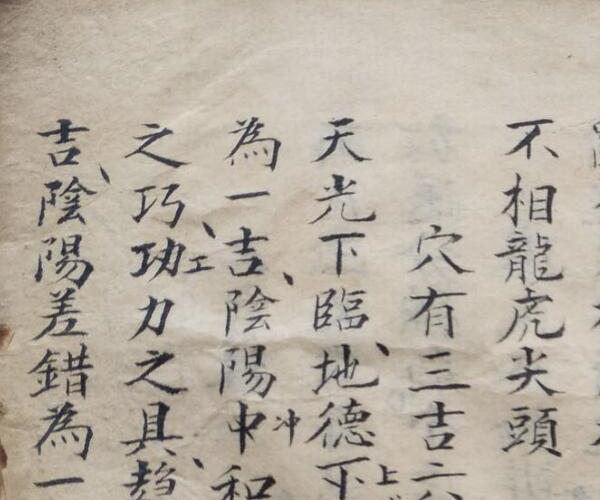 不相龍虎尖頭
穴有三吉六
天光下臨、地德下上
為一吉、陰陽中冲和
之巧、功工力之具、趋
吉、陰陽差錯為一